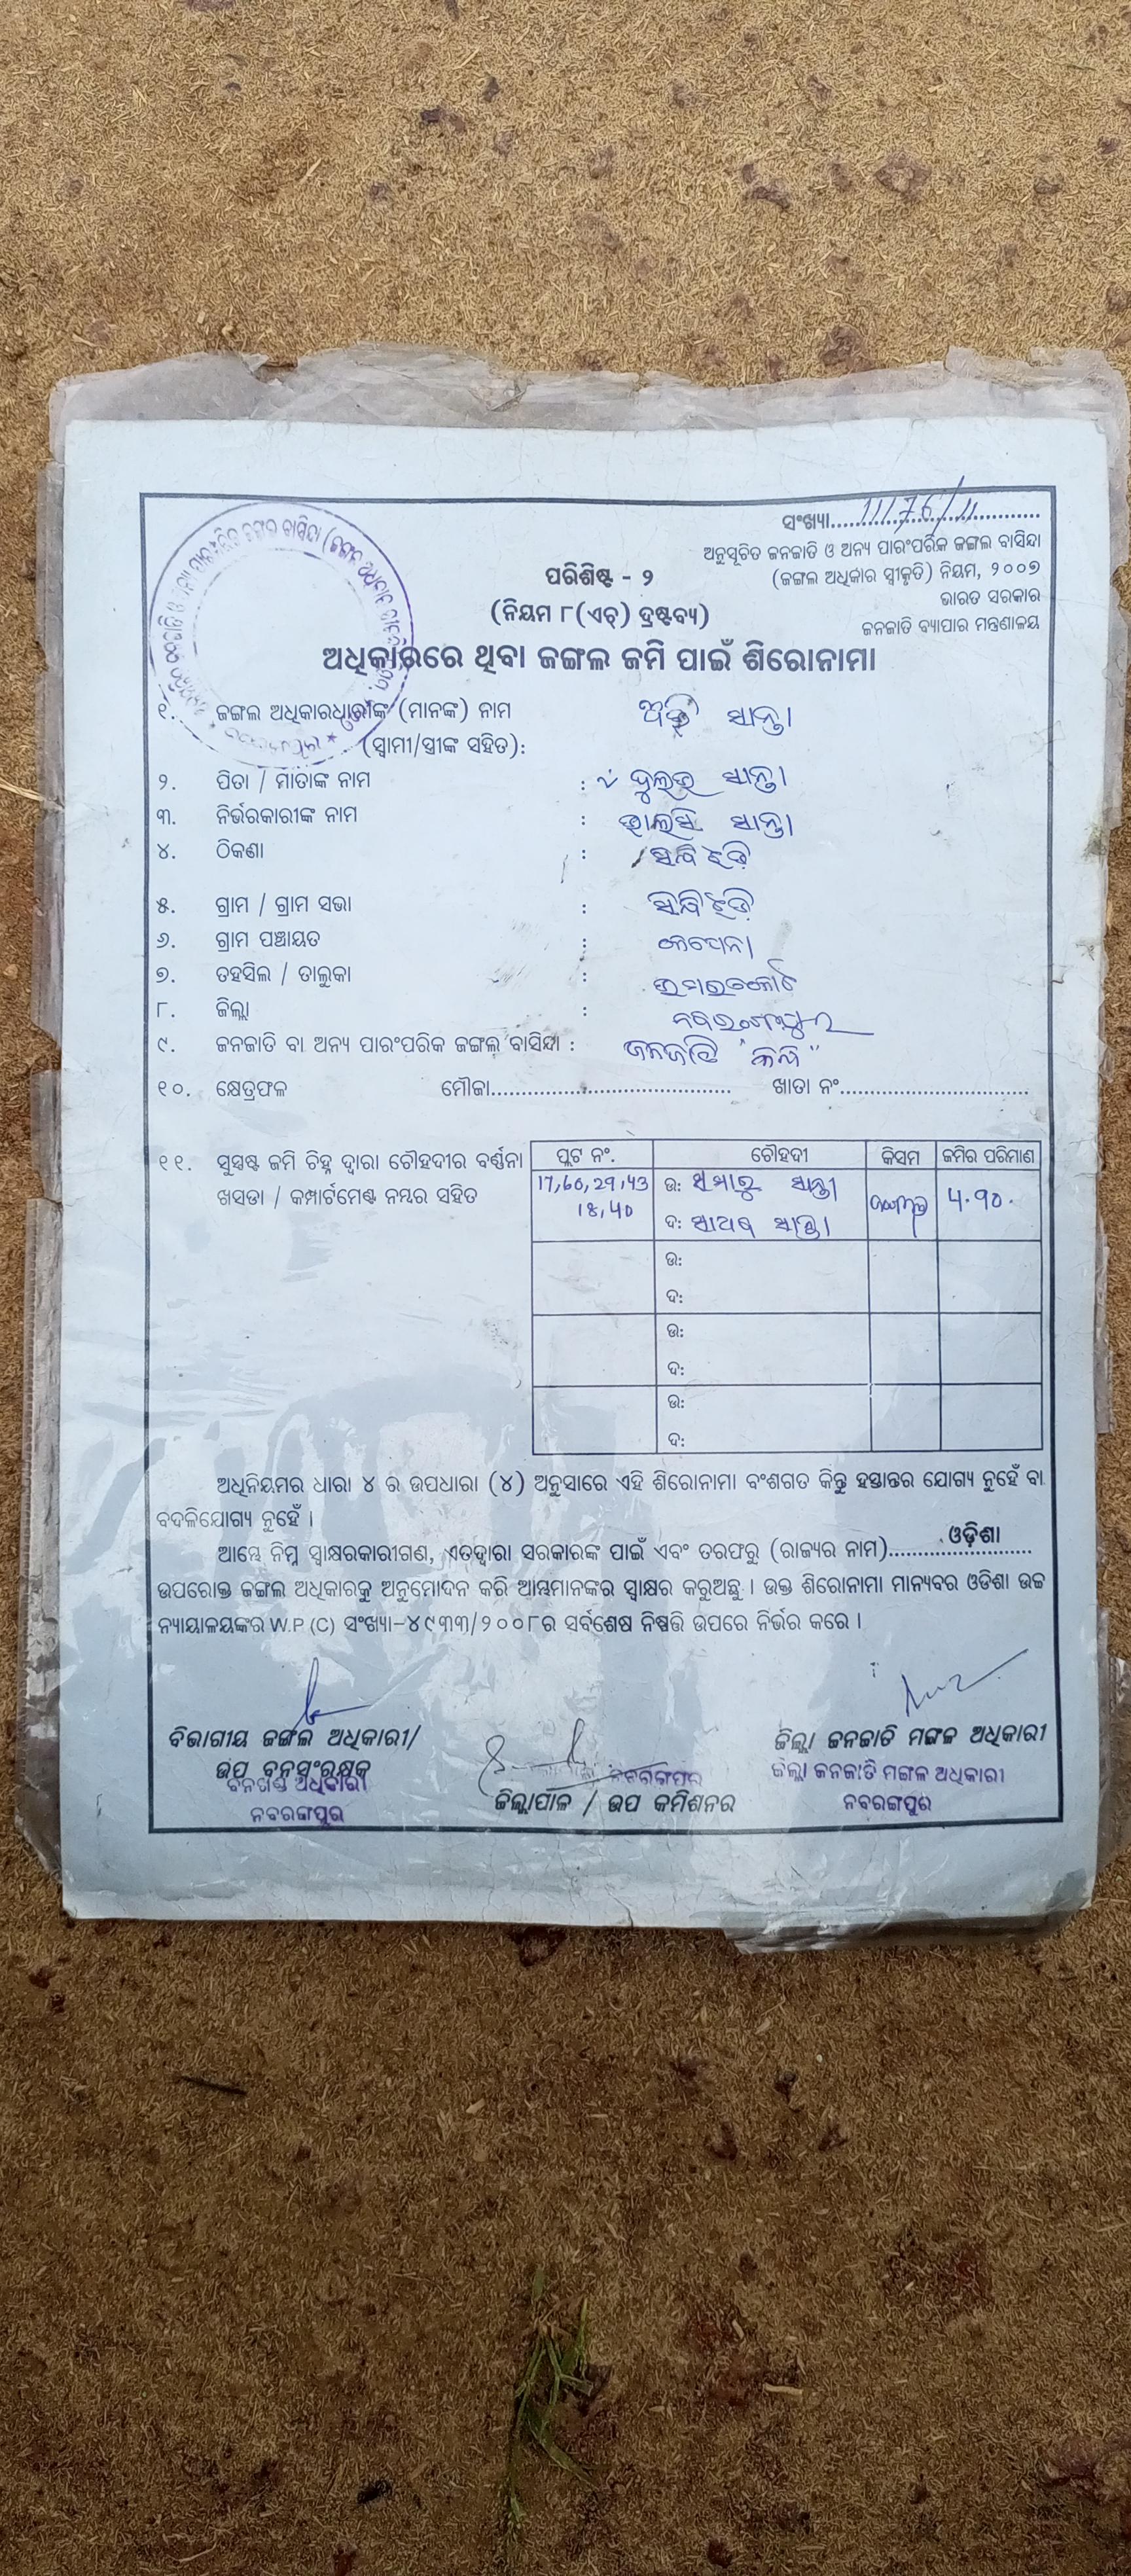 ସଂଖ୍ୟା..........11176/11..........
ଅନୁସୂଚିତ ଜନଜାତି ଓ ଅନ୍ୟ ପାରଂପରିକ ଜଙ୍ଗଲ ବାସିନ୍ଦା
(ଜଙ୍ଗଲ ଅଧିକାର ସ୍ୱୀକୃତି) ନିୟମ, ୨୦୦୭
ଭାରତ ସରକାର
ଜନଜାତି ବ୍ୟାପାର ମନ୍ତ୍ରଣାଳୟ
ପରିଶିଷ୍ଟ - ୨
(ନିୟମ ୮(ଏଚ୍) ଦ୍ରଷ୍ଟବ୍ୟ)
ଅଧିକାରରେ ଥିବା ଜଙ୍ଗଲ ଜମି ପାଇଁ ଶିରୋନାମା
୧. ଜଙ୍ଗଲ ଅଧିକାରଧାରୀଙ୍କ (ମାନଙ୍କ) ନାମ ସାନ୍ତା
(ସ୍ୱାମୀ/ସ୍ତ୍ରୀଙ୍କ ସହିତ):
୨. ପିତା / ମାତାଙ୍କ ନାମ : ଦୁଲଭ ସାନ୍ତା
୩. ନିର୍ଭରକାରୀଙ୍କ ନାମ : ସାନ୍ତା
୪. ଠିକଣା :
୫. ଗ୍ରାମ / ଗ୍ରାମ ସଭା :
୬. ଗ୍ରାମ ପଞ୍ଚାୟତ :
୭. ତହସିଲ / ତାଲୁକା : ଉମରକୋଟ
୮. ଜିଲ୍ଲା : ନବରଂଗପୁର
୯. ଜନଜାତି ବା ଅନ୍ୟ ପାରଂପରିକ ଜଙ୍ଗଲ ବାସିନ୍ଦା : ଜନଜାତି
୧୦. କ୍ଷେତ୍ରଫଳ ମୌଜା.................................. ଖାତା ନଂ..............................
୧୧. ସୁସ୍ପଷ୍ଟ ଜମି ଚିହ୍ନ ଦ୍ୱାରା ଚୌହଦୀର ବର୍ଣ୍ଣନା
ଖସଡା / କମ୍ପାର୍ଟମେଣ୍ଟ ନମ୍ବର ସହିତ
ପ୍ଲଟ ନଂ. ଚୌହଦୀ କିସମ ଜମିର ପରିମାଣ
17,60,29,43 ଉ: ସାନ୍ତା
18,40 ଦ: ସାନ୍ତା 4.90.
ଉ:
ଦ:
ଉ:
ଦ:
ଉ:
ଦ:
ଅଧିନିୟମର ଧାରା ୪ ର ଉପଧାରା (୪) ଅନୁସାରେ ଏହି ଶିରୋନାମା ବଂଶଗତ କିନ୍ତୁ ହସ୍ତାନ୍ତର ଯୋଗ୍ୟ ନୁହେଁ ବା
ବଦଳିଯୋଗ୍ୟ ନୁହେଁ ।
ଆମ୍ଭେ ନିମ୍ନ ସ୍ୱାକ୍ଷରକାରୀଗଣ, ଏତଦ୍ଵାରା ସରକାରଙ୍କ ପାଇଁ ଏବଂ ତରଫରୁ (ରାଜ୍ୟର ନାମ).......ଓଡ଼ିଶା.......
ଉପରୋକ୍ତ ଜଙ୍ଗଲ ଅଧିକାରକୁ ଅନୁମୋଦନ କରି ଆମ୍ଭମାନଙ୍କର ସ୍ୱାକ୍ଷର କରୁଅଛୁ । ଉକ୍ତ ଶିରୋନାମା ମାନ୍ୟବର ଓଡିଶା ଉଚ୍ଚ
ନ୍ୟାୟାଳୟଙ୍କର W.P (C) ସଂଖ୍ୟା-୪୯୩୩/୨୦୦୮ର ସର୍ବଶେଷ ନିଷ୍ପତ୍ତି ଉପରେ ନିର୍ଭର କରେ ।
ବିଭାଗୀୟ ଜଙ୍ଗଲ ଅଧିକାରୀ/
ଉପ ବନସଂରକ୍ଷକ
ବନଖଣ୍ଡ ଅଧିକାରୀ
ନବରଙ୍ଗପୁର
ନବରଙ୍ଗପୁର
ଜିଲ୍ଲାପାଳ / ଉପ କମିଶନର
ଜିଲ୍ଲା ଜନଜାତି ମଙ୍ଗଳ ଅଧିକାରୀ
ଜିଲ୍ଲା ଜନଜାତି ମଙ୍ଗଳ ଅଧିକାରୀ
ନବରଙ୍ଗପୁର